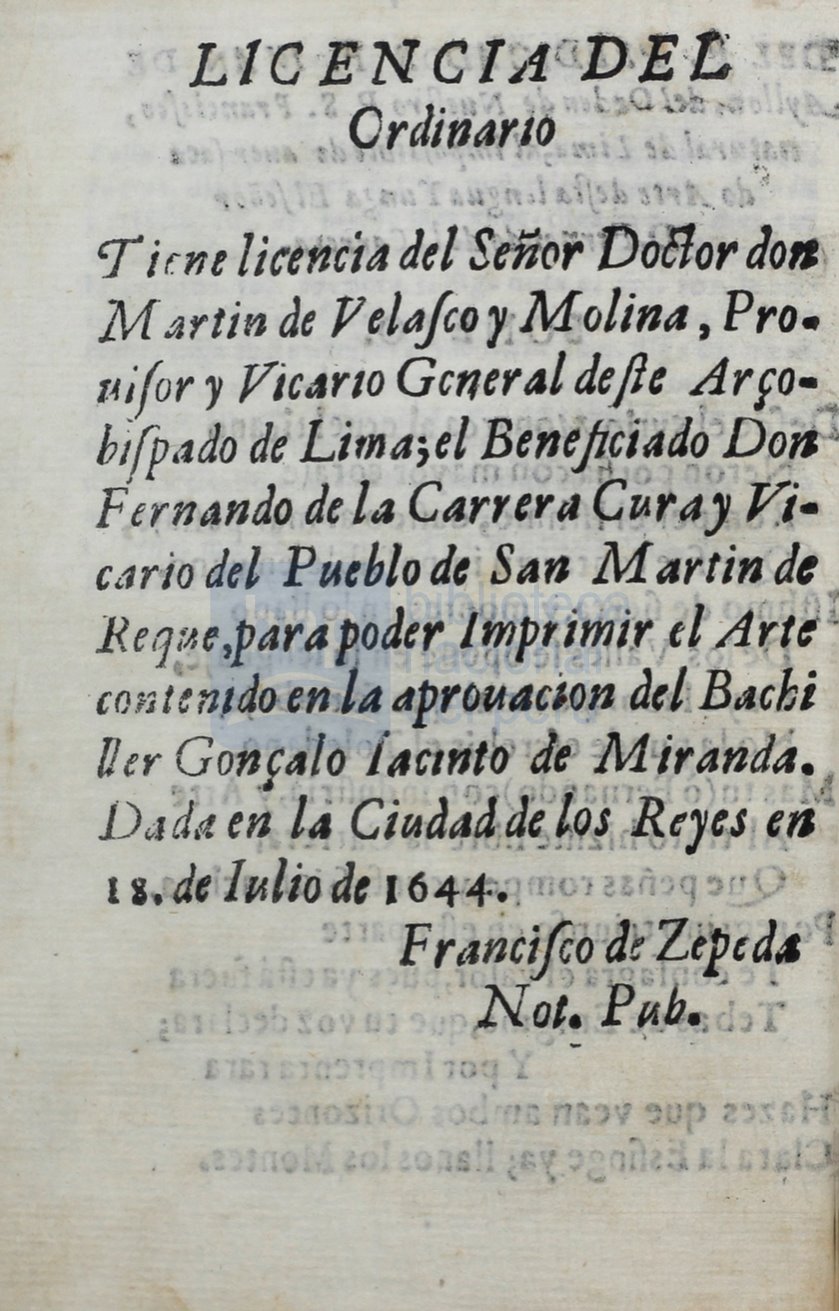 LICENCIA DEL
Ordinario
Tiene licencia del Señor Doctor don
Martin de Velaſco y Molina, Pro-
uiſor y Vicario General deſte Arço-
biſpado de Lima; el Beneficiado Don
Fernando de la Carrera Cura y Vi-
cario del Pueblo de San Martin de
Reque, para poder Imprimir el Arte
contenido en la aprouacion del Bachi
ller Gonçalo Iacinto de Miranda.
Dada en la Ciudad de los Reyes en
18. de Iulio de 1644.
Franciſco de Zepeda
Not. Pub.
biblioteca
nacional
del perú